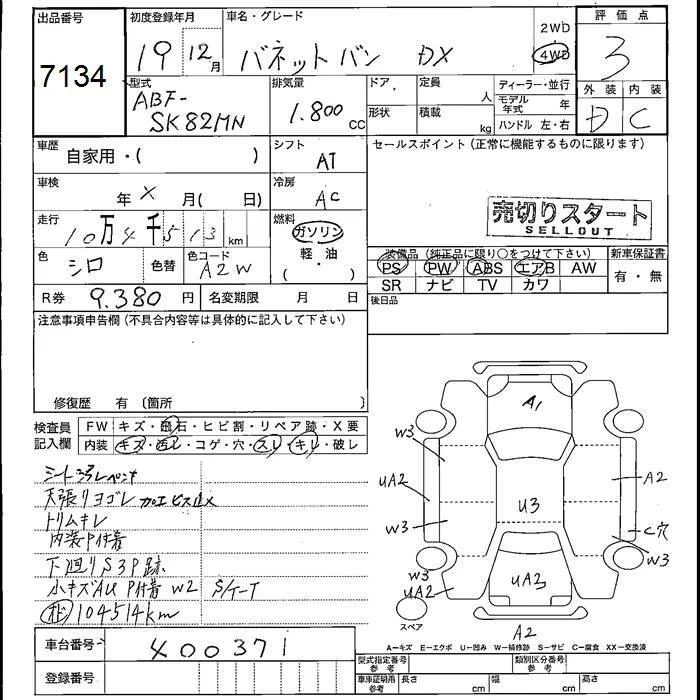 出品番号 初度登録年月 車名・グレード 2WD 評価点
7134 19 12月 バネットバン DX 4WD 3
型式 排気量 ドア 定員 人 ディーラー・並行 外装 内装
ABF- SK82MN 1.800 CC 形状 積載 kg モデル年式 年 D C
ハンドル 左・右
車歴 自家用・( ) シフト AT セールスポイント(正常に機能するものに限ります)
車検 年 X 月( 日) 冷房 AC
売切りスタート
SELLOUT
走行 10万4千513 km 燃料 ガソリン・軽油( )
色 シロ 色替 色コード A2W
装備品(純正品に限り○をつけて下さい) 新車保証書
PS PW ABS エアB AW 有・無
SR ナビ TV カワ
R券 9.380円 名変期限 月 日 後日品
注意事項申告欄(不具合内容等は具体的に記入して下さい)
修復歴 有 〔箇所 〕
検査員記入欄 FW キズ・飛石・ヒビ割・リペア跡・X要
内装 キズ・汚レ・コゲ・穴・スレ・キレ・破レ
天張リヨゴレ
トリムキレ
内装P付着
下廻りS3P跡
小キズAU P付着 W2 S/ケート
104514km
A1
W3
UA2
W3
U3
A2
C穴
W3
W3
UA2
UA3
スペア
A2
A−キズ E−エクボ U−凹み W−補修跡 S−サビ C−腐食 XX−交換済
車台番号 400371
型式指定番号 参考 類別区分番号 参考
登録番号 車庫証明用 参考 長さ cm 幅 cm 高さ cm